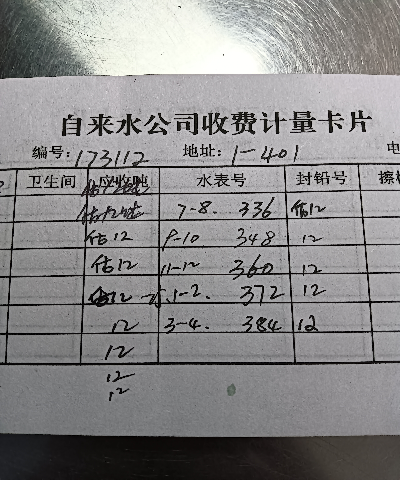 自来水公司收费计量卡片
编号: 173112 地址: 1-401 电
卫生间 水表号 封铅号
7-8. 336 估12
估12 9-10 348 12
估12 11-12 360 12
1-2. 372 12
12 3-4. 384 12
12
12
12